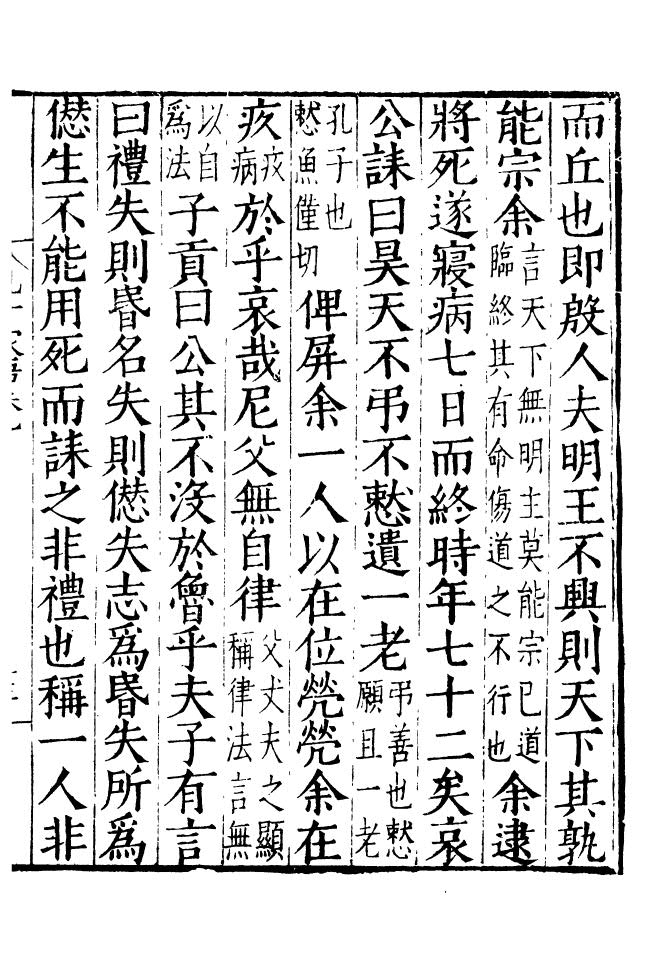 而丘也即殷人夫明王不興則天下其孰
能宗余言天下無明主莫能宗己道
臨終其有命傷道之不行也余逮
將死遂寢病七日而終時年七十二矣哀
公誄曰昊天不弔不憖遺一老弔善也憖
願且一老
孔子也
憖魚僅切俾屏余一人以在位焭焭余在
疚疚
病於乎哀哉尼父無自律父丈夫之顯
稱律法言無
以自
爲法子貢曰公其不沒於魯乎夫子有言
曰禮失則昬名失則僁失志爲昬失所爲
僁生不能用死而誄之非禮也稱一人非